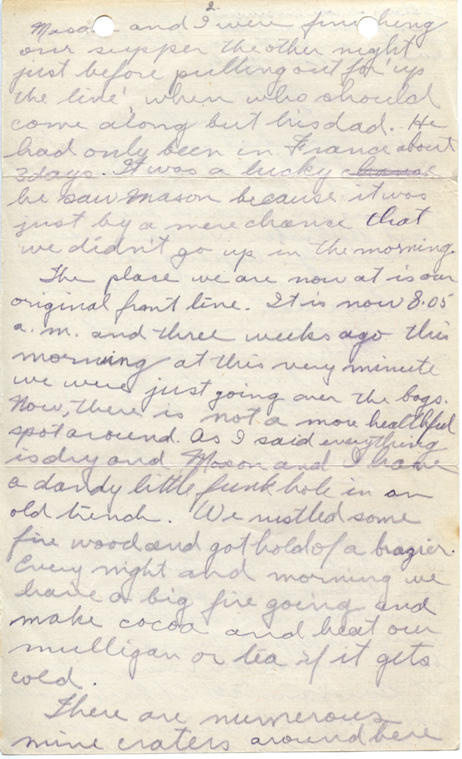 2.
Mason and I were finishing
our supper the other night
just before pulling out for 'up
the line', when who should
come along but his dad. He
had only been in France about
2 days. It was a lucky chance
he saw Mason because it was
just by a mere chance that
we didn't go up in the morning.
The place we are now at is our
original front line. It is now 8.05
a.m. and three weeks ago this
morning at this very minute
we were just going over the bags.
Now, there is not a more healthful
spot around. As I said everything
is dry and Mason and I have
a dandy little funk hole in an
old trench. We rustled some
fire wood and got hold of a brazier.
Every night and morning we
have a big fire going and
make cocoa and heat our
mulligan or tea if it gets
cold.
There are numerous
mine craters around here